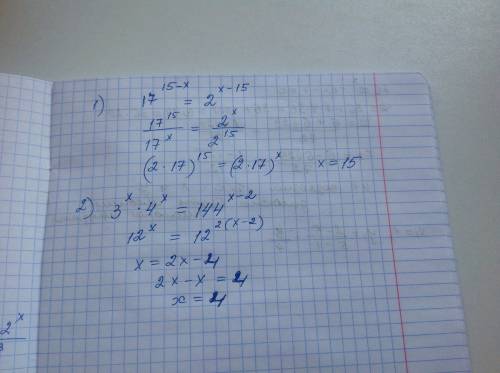 1) 17^(15-x) = 2^(x-15)
17^15 / 17^x = 2^x / 2^15
(2·17)^15 = (2·17)^x x = 15
2) 3^x · 4^x = 144^(x-2)
12^x = 12^(2(x-2))
x = 2x-4
2x-x = 4
x = 4
2^x